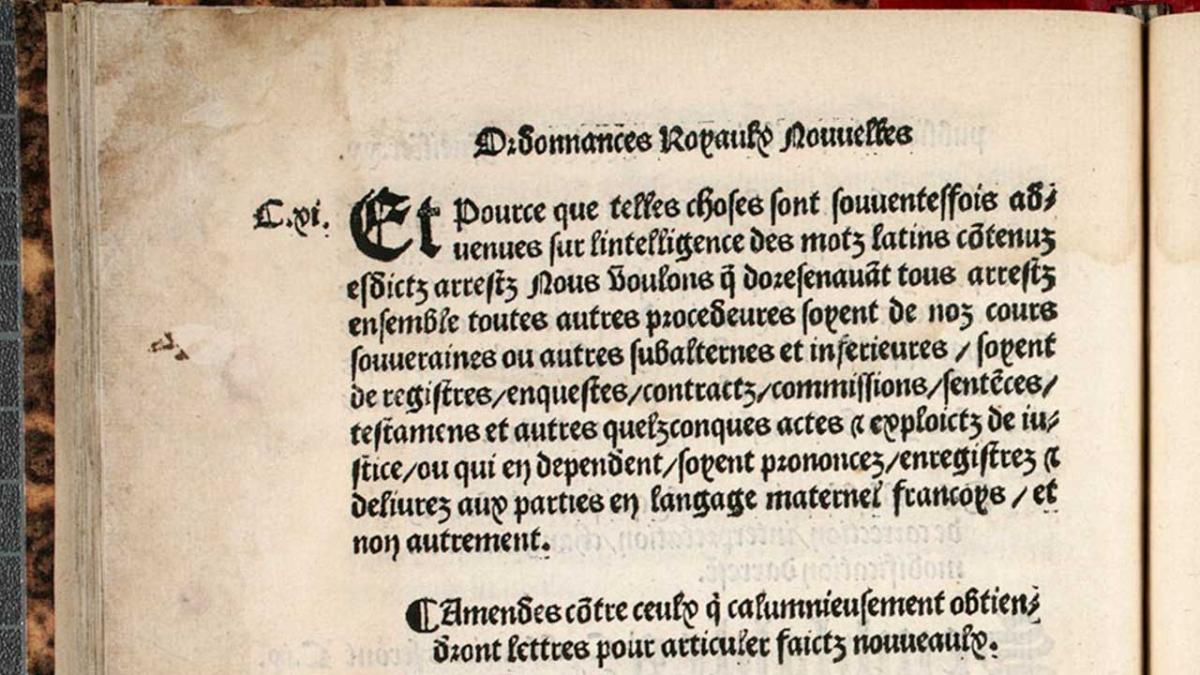 Ordonnances Royaulx Nouuelles
C.xi.
Et Pource que telles choses sont souuenteffois ad⸗
uenues sur lintelligence des motz latins cõtenuz
esdictz arrestz Nous Voulons q̃ doresenauãt tous arrestz
ensemble toutes autres procedeures soyent de noz cours
souueraines ou autres subalternes et inferieures / soyent
de registres/enquestes/contractz/commissions/sentẽces/
testamens et autres quelzconques actes ⁊ exploictz de iu⸗
stice/ou qui en dependent/soyent prononcez/enregistrez ⁊
deliurez aux parties en langage maternel francoys / et
non autrement.
¶Amendes cõtre ceulx q̃ calumnieusement obtien⸗
dront lettres pour articuler faictz nouueaulx.